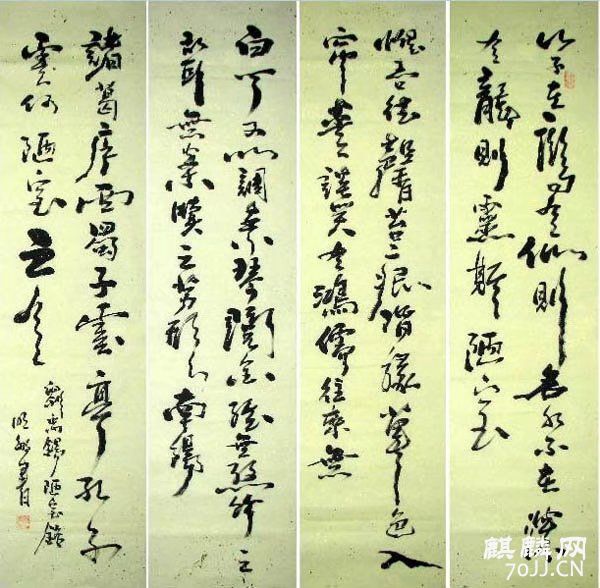 山不在高有仙則名水不在深
有龍則靈斯是陋室
惟吾德馨苔痕上階綠草色入
簾青談笑有鴻儒往來無
白丁可以調素琴閱金經無絲竹之
亂耳無案牘之勞形南陽
諸葛廬西蜀子雲亭孔子
雲何陋室之
劉禹錫陋室銘
書
麒麟网
70JJ.CN